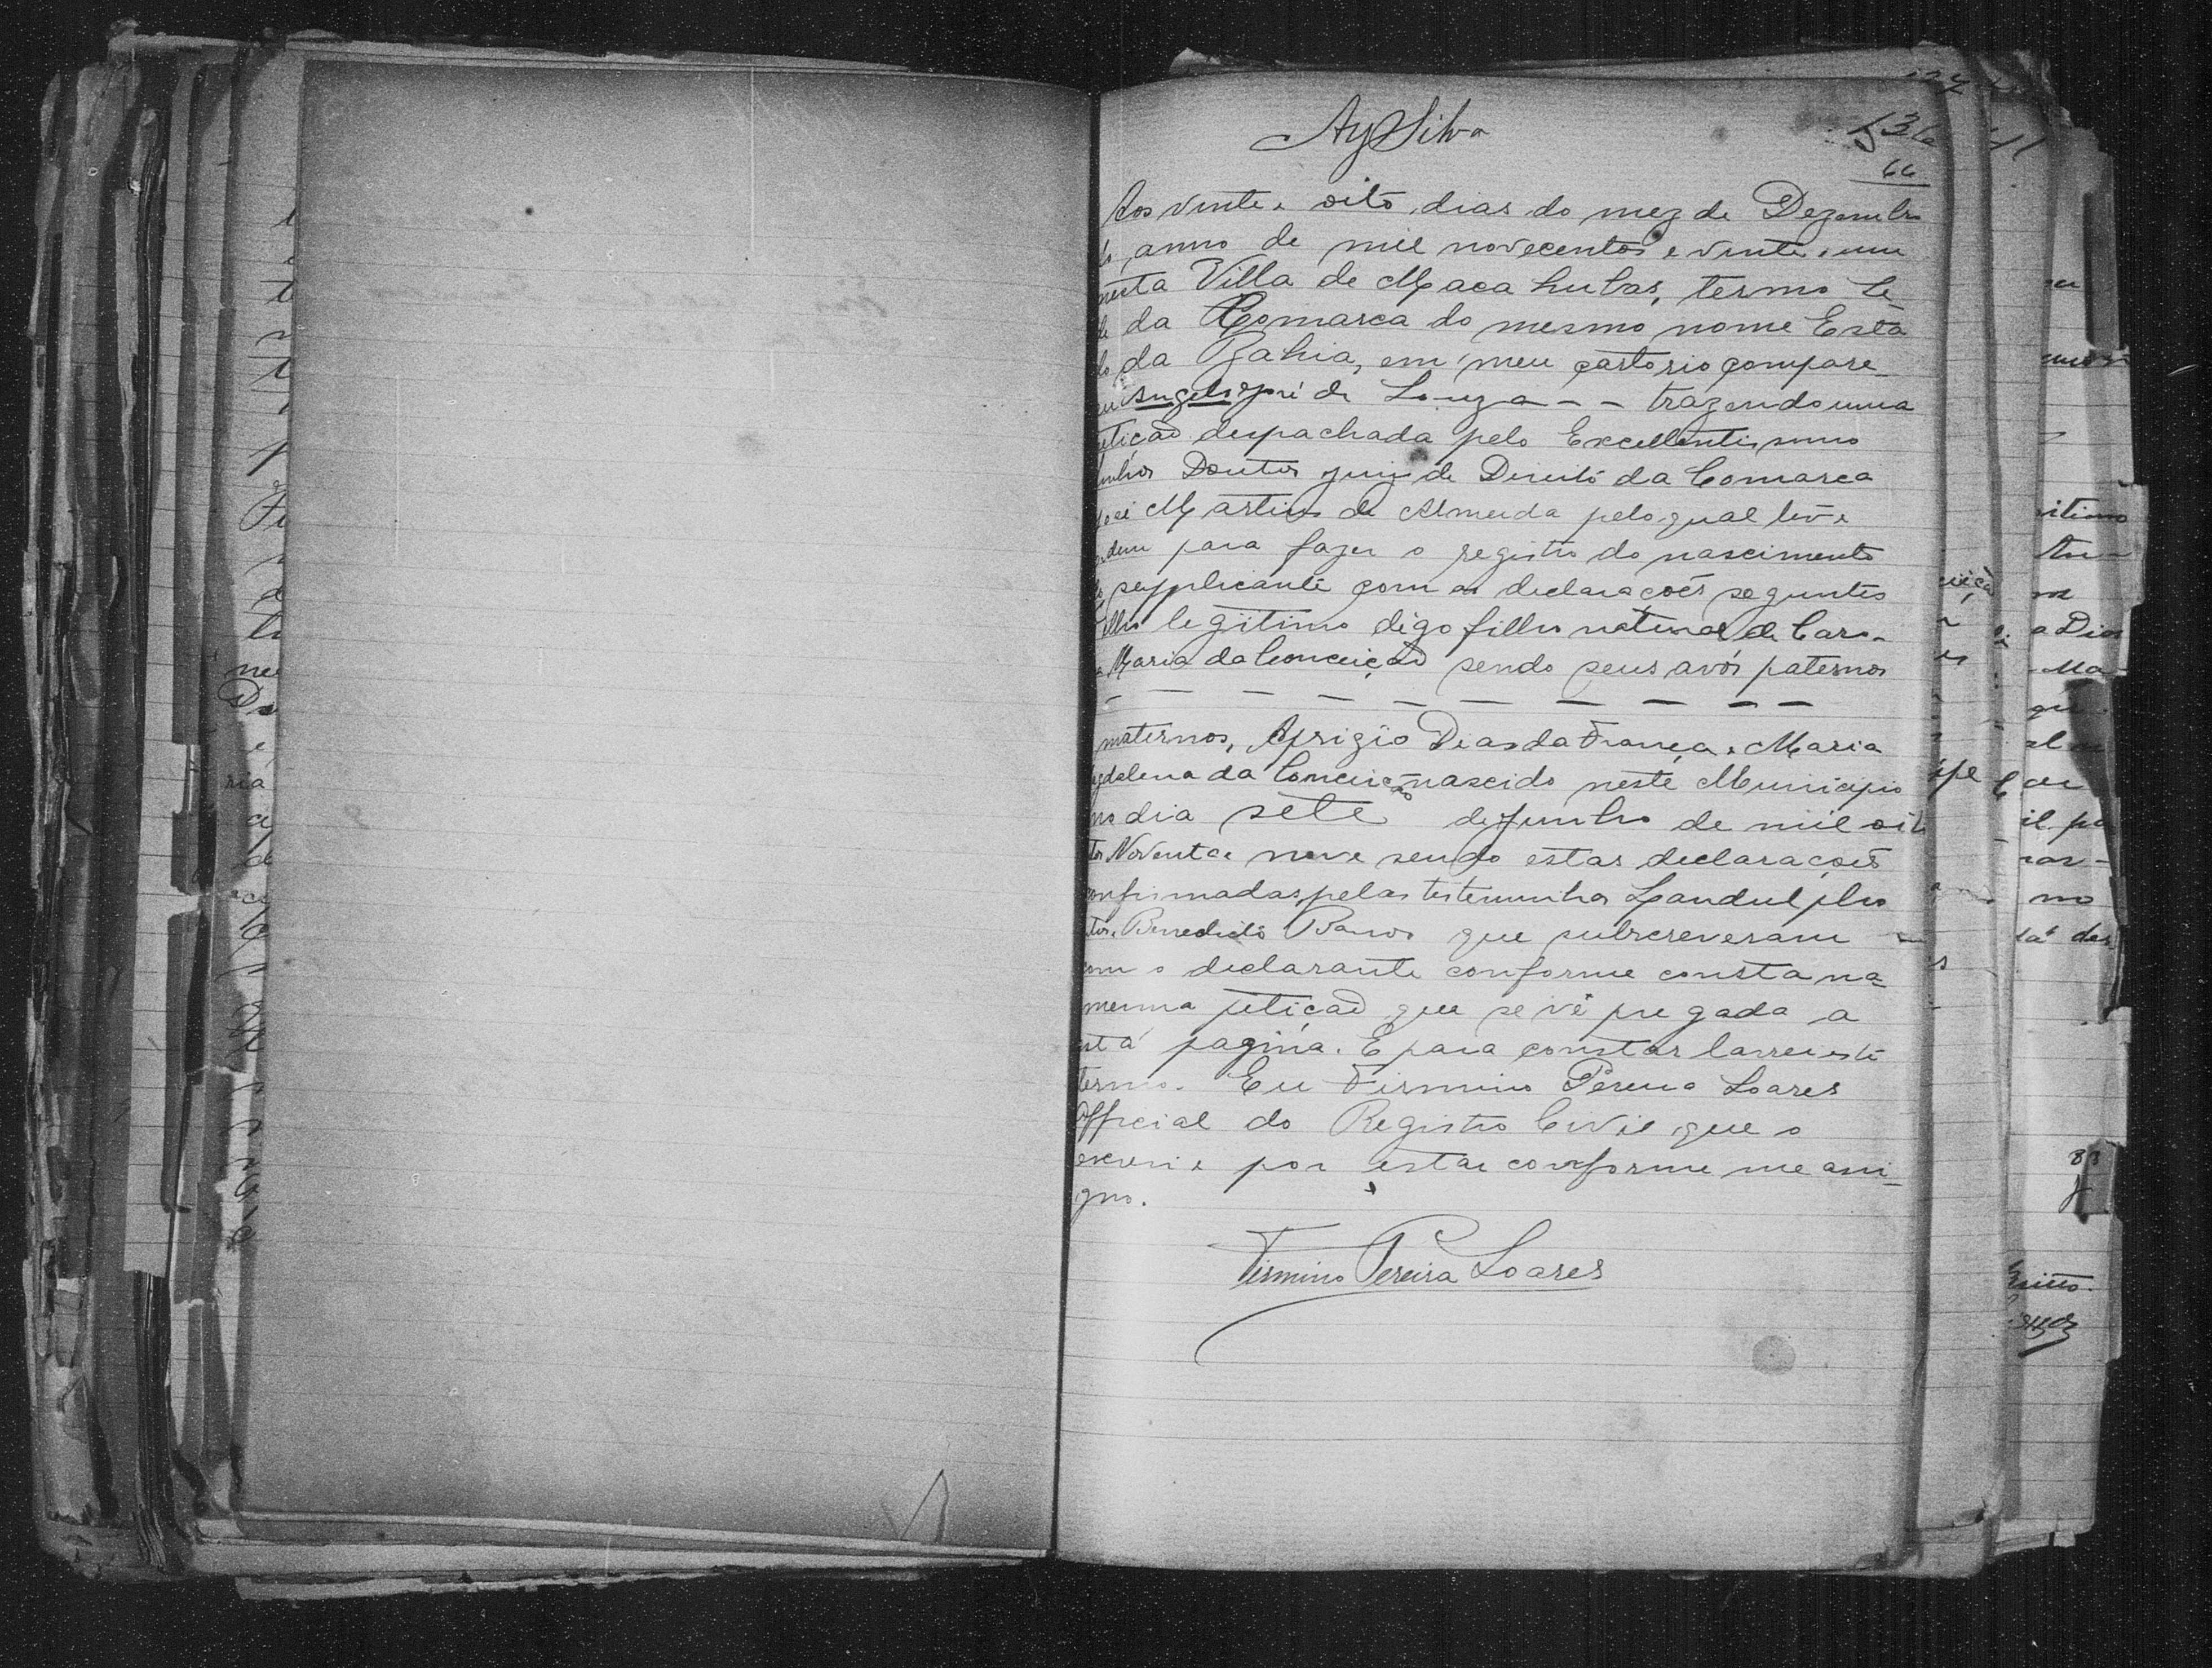 AySilva
136
66
Aos vinte e oito dias do mez de Dezembro
do anno de mil novecentos e vinte e um
nesta Villa de Macahubas, termo Sé
de da Comarca do mesmo nome Esta
do da Bahia, em meu cartorio compare
ceu Angelo José de Souza - - trazendo uma
petição despachada pelo Excellentissimo
Senhor Doutor Juiz de Direito da Comarca
José Martins de Almeida pelo qual tive
ordem para fazer o registro do nascimento
do supplicante com as declarações seguintes
Filho legitimo digo filho natural de Caro-
Maria da Conceição sendo seus avós paternos
— — — — — — — — —
maternos, Aprigio Dias da França e Maria
Magdalena da Conceição nascido neste Municipio
no dia sete de Junho de mil oito
Noventa e nove sendo estas declarações
confirmadas pelas testemunhas Landulpho
Benedicto Barros que subscreveram
com o declarante conforme consta na
mesma petição que se vê pregada a
esta pagina. E para constar lavrei este
termo. Eu Firmino Pereira Soares
Official do Registro Civil que o
escrevi e por estar conforme me assi-
gno.
Firmino Pereira Soares